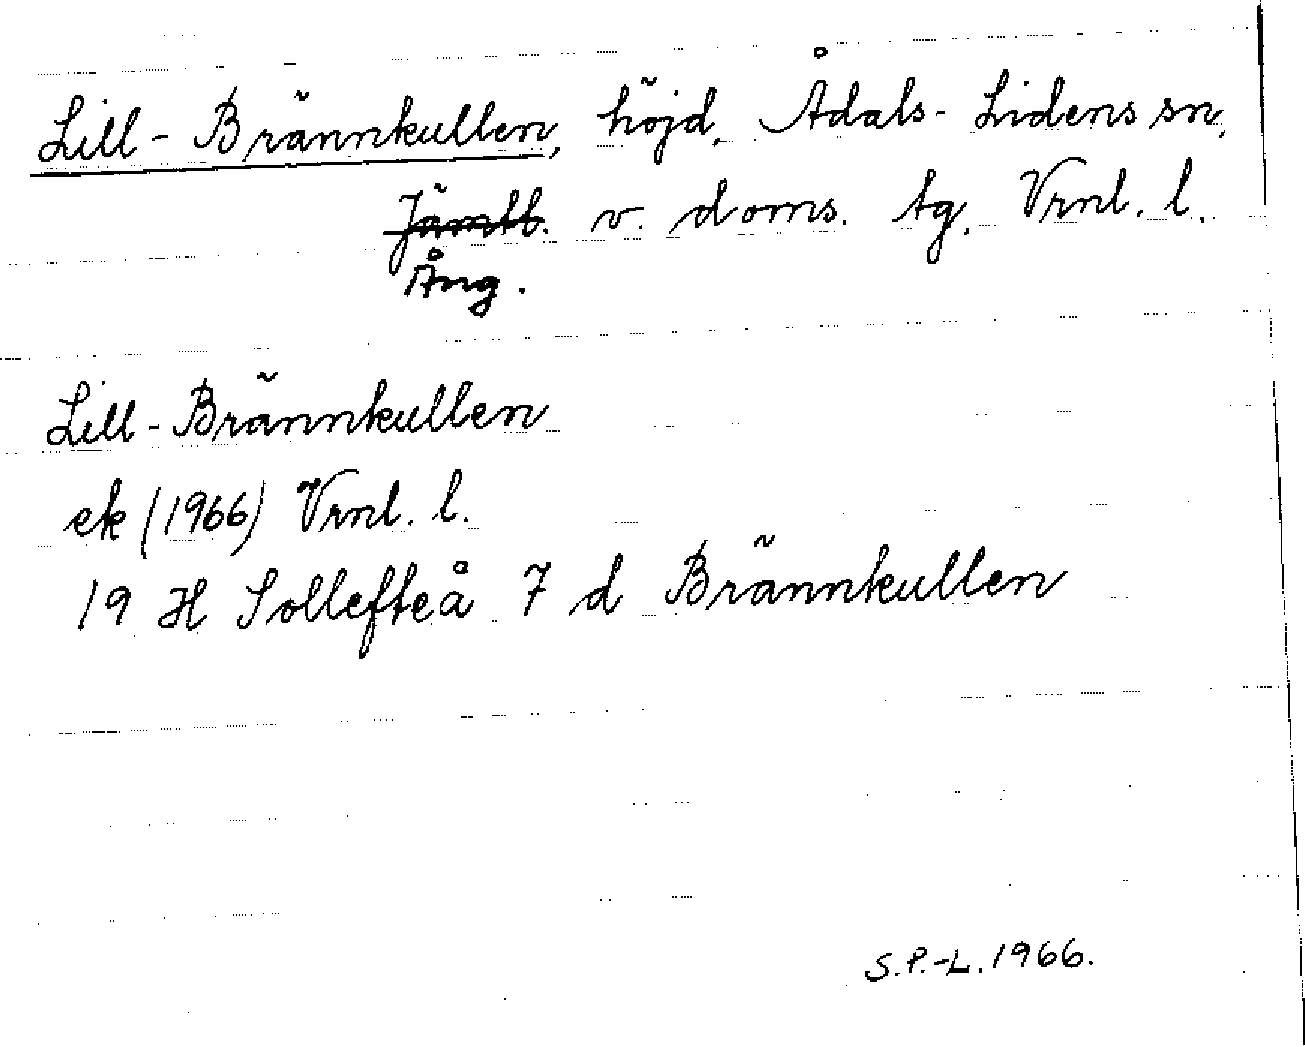 Lill-Brännkullen, höjd, Ådals-Lidens sn,
Jämtb. v. doms. tg, Vrnl. l.
Ång.
Lill-Brännkullen
ek (1966) Vrnl. l.
19 H Sollefteå 7 d Brännkullen
S.P.-L. 1966.